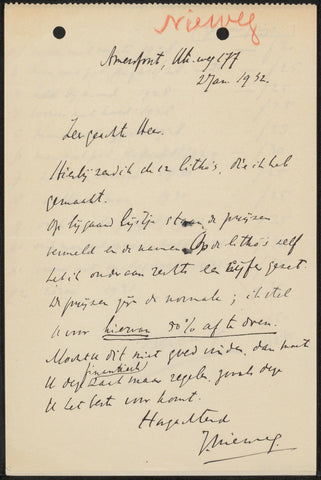 Nieweg
Amersfoort, Utr. weg 177
2 Jan. 1932.
Zeergeachte Heer.
Hierbij zend ik de 12 litho's, die ik heb
gemaakt.
Op bijgaand lijstje staan de prijzen
vermeld en de namen. Op de litho's zelf
heb ik onderaan rechts een cijfer gezet.
De prijzen zijn de normale; ik stel
u voor hiervan 20% af te doen.
Mocht U dit niet goed vinden, dan moet
U deze financieele zaak maar regelen, zooals deze
U het beste voor komt.
Hoogachtend
J. Nieweg.